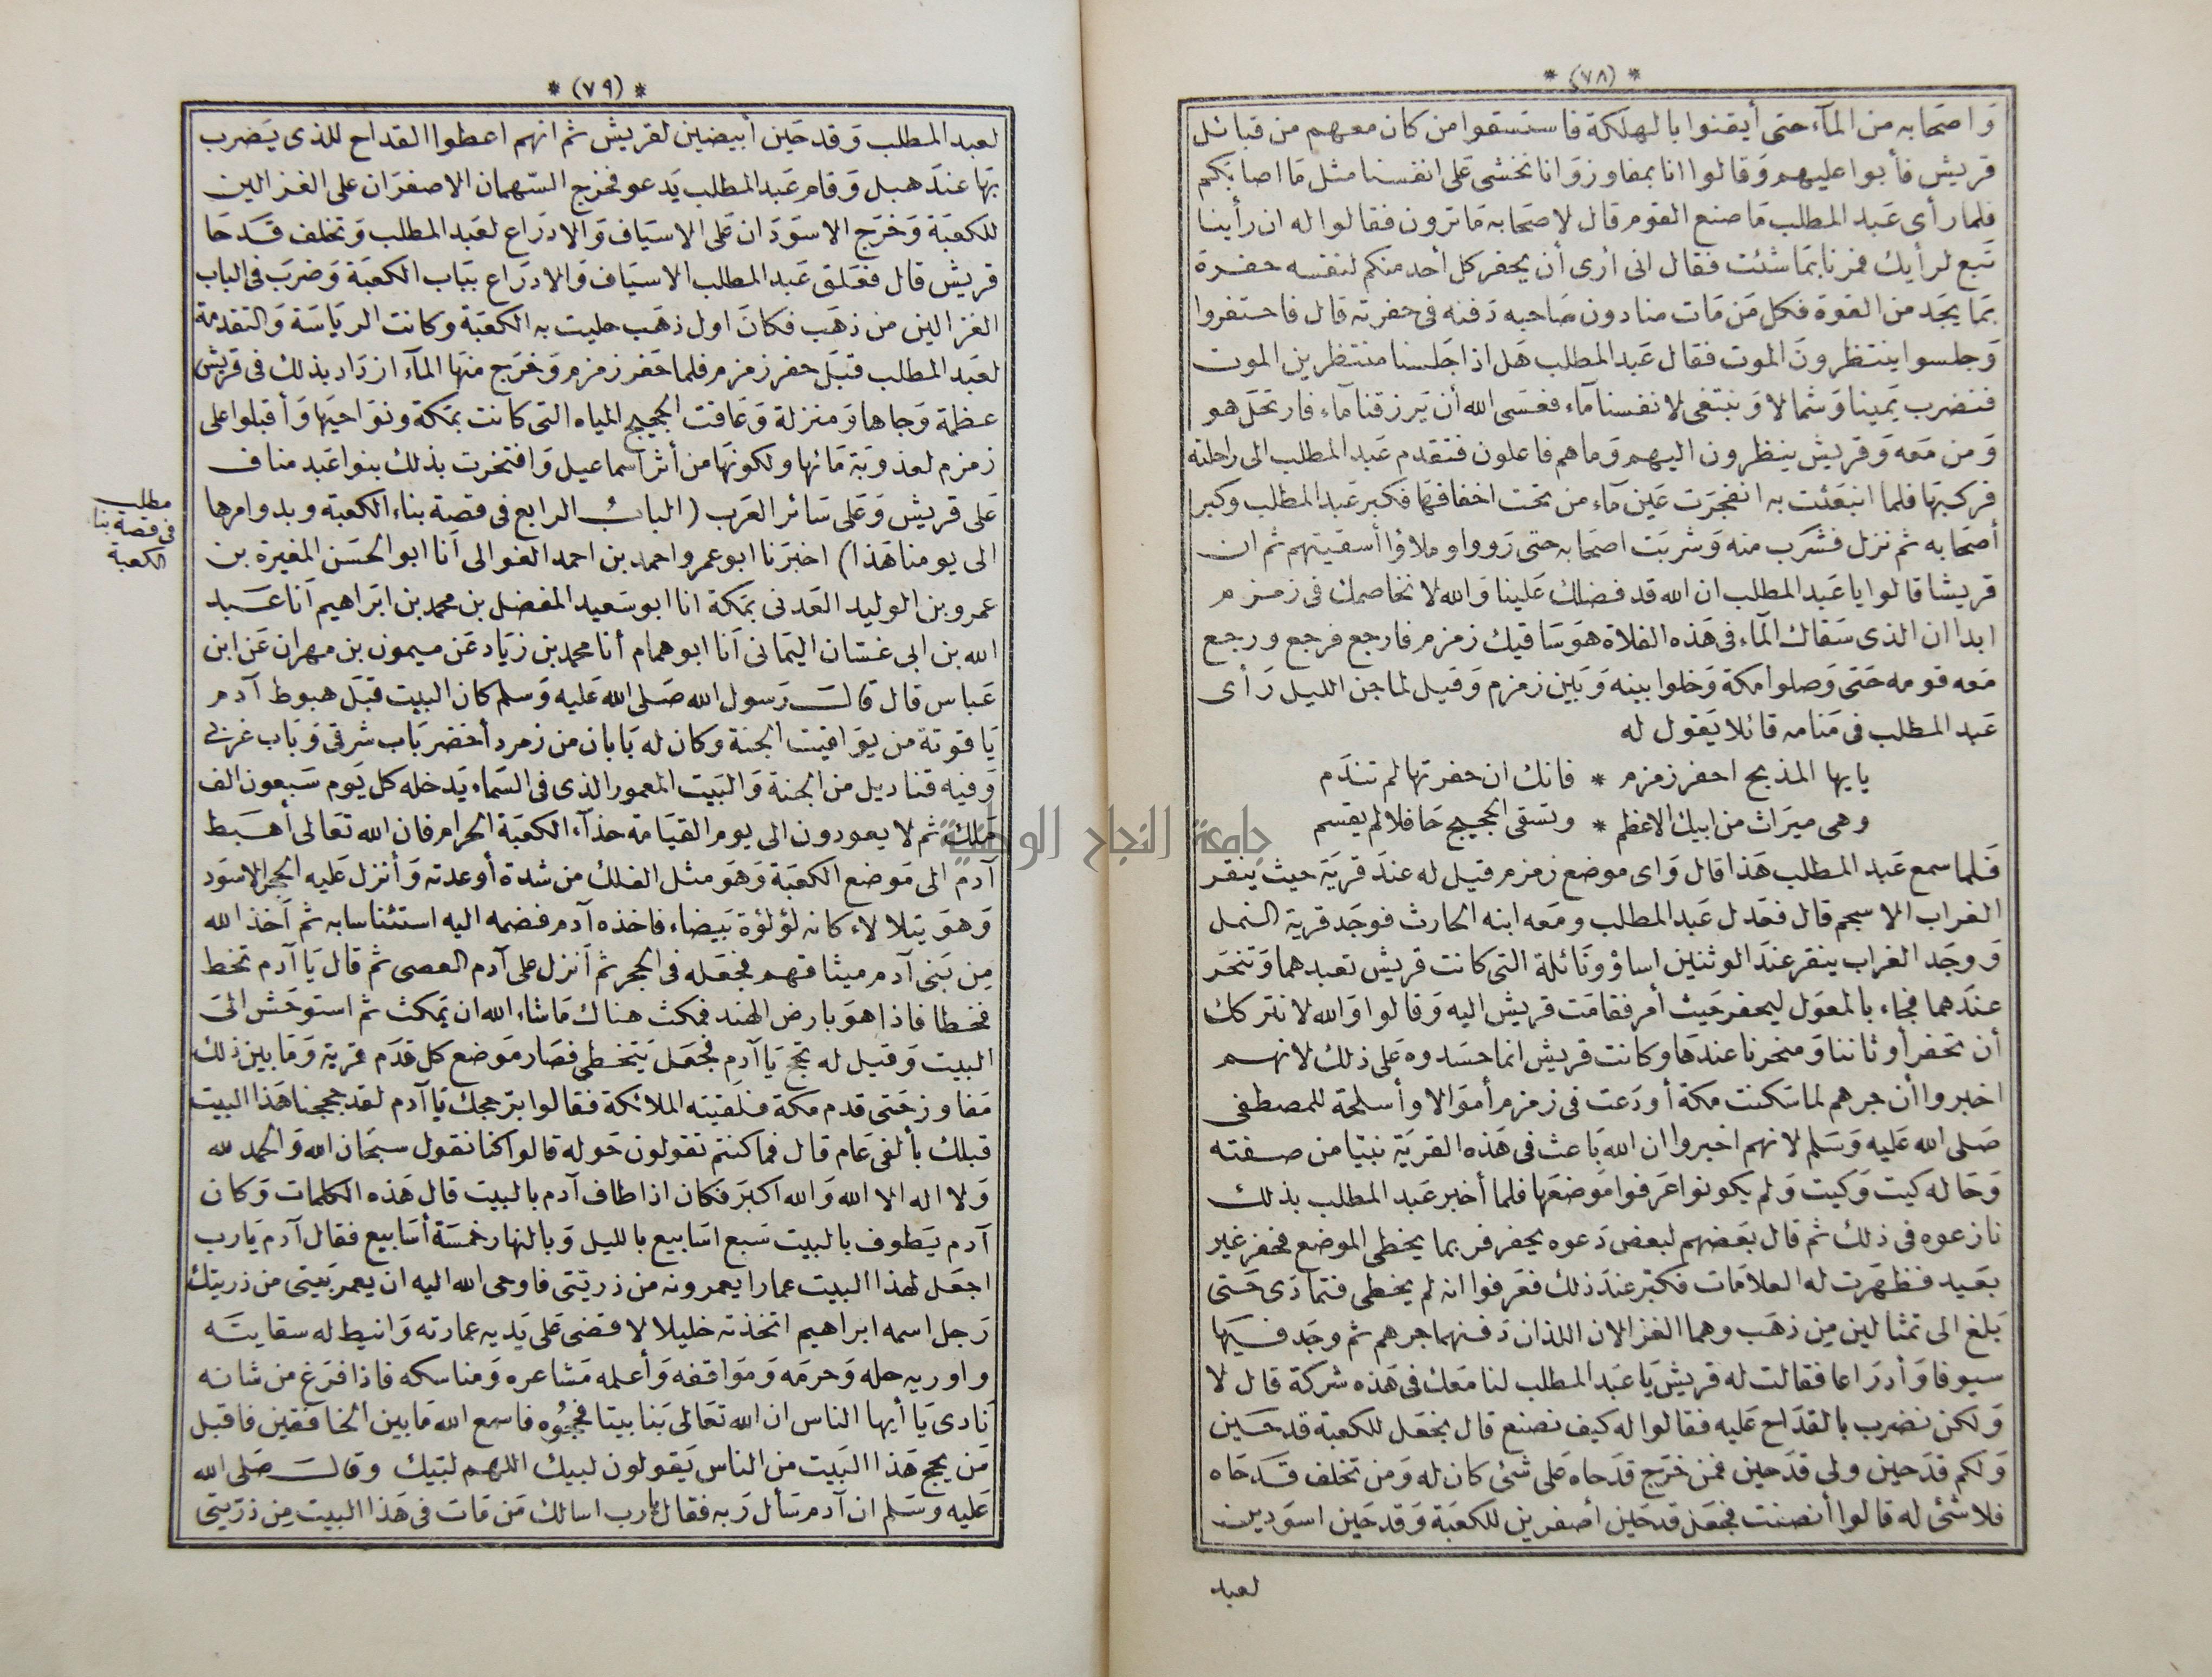 * (٧٨) *
وَاصحَابه من المآء حتى أيقنوا بالهلكة فاستسقوا من كان معهم من قبائل
قريش فأبوا عليهم وَقالوا انا بمفاوز وَانا نخشى عَلى انفسنا مثل مَا اصابكم
فلما رأى عَبد المطلب مَا صنع القوم قال لاصحَابه مَا ترون فقالوا له ان رأينا
تَبع لرأيك فمرنا بمَا شئت فقال انى أرى أن يحفر كل أحد منكم لنفسه حفرة
بمَا يجَد من القوة فكل مَن مَات منا دون صَاحبه دَفنه فى حفرته قال فاحتفروا
وَجلسوا ينتظرونَ الموت فقال عَبد المطلب هَل اذا جَلسنا منتظرين الموت
فنضرب يَمينا وَشمالا وَنبتغى لانفسنا مآء فعَسَى الله أن يَرزقنا مآء فارتحَل هو
وَمن مَعه وَقريش ينظرون اليهم وَما هم فاعلون فتقدم عَبد المطلب الى راحلته
فركبهَا فلما انبعَثت به انفجرَت عَين مآء من تحت اخفافهَا فكبر عَبد المطلب وكبر
أصحَابه ثم نزل فشرَب منه وَشربَت اصحَابه حتى رَووا وملاؤا أسقيتهم ثم ان
قريشا قالوا يا عَبد المطلب ان الله قد فضلك عَلينا وَالله لا نخاصمك فى زمزم
ابدا ان الذى سَقاك المآء فى هَذه الفلاة هوَ سَاقيك زمزم فارجع فرجع ورجع
مَعه قومه حَتى وَصلوا مكة وَخلوا بينه وَبَين زمزم وَقيل لما جن الليل رَأى
عَبد المطلب فى مَنامه قائلا يَقول له
يايها المذبح احفر زمزم * فانك ان حفرتها لم تندَم
وهى ميرَاث من ابيك الاعظم * وتسقى الحجيج حَافلا لم يقسم
فَلما سمع عَبد المطلب هَذا قال وَاى موضع زمزم قيل له عندَ قريَة حيث ينقر
الغراب الاسحم قال فعَدل عَبد المطلب ومَعه ابنه الحارث فوجَد قرية النمل
وَوجَد الغراب ينقر عندَ الوثنين اساف وَنَائلة التى كانت قريش تعبدهما وَتنحَر
عندَهما فجاء بالمعوَل ليحفر حَيث أمر فقامَت قريش اليه وَقالوا وَالله لا نتركك
أن تحفر أوثاننا وَمنحرنا عندَها وكانت قريش انما حسَدوه عَلى ذلك لانهم
اخبروا أن جرهم لما سَكنت مكة أودَعت فى زمزم أموَالا وأسلحة للمصطفى
صَلى الله عَليه وَسَلم لانهم اخبروا ان الله بَاعث فى هَذه القريَة نبيّا من صفته
وَحَاله كيت وَكيت وَلم يكونوا عَرفوا موَضعَها فلما أخبر عَبد المطلب بذلك
نازعوه فى ذلك ثم قال بَعَضهم لبعض دَعوه يحفر فربما يخطى الموضع فحفر غير
بعَيد فظهَرت له العلامَات فكبّر عندَ ذلك فعَرفوا انه لم يخطى فتمادَى حَتى
بَلغ الى تمثالين مِن ذهَب وهما الغزالان اللذان دَفنهما جرهم ثم وجَد فيهَا
سيوفا وَأدرَاعا فقالت له قريش يَا عَبد المطلب لنا مَعك فى هَذه شركة قال لا
وَلكن نضرب بالقدَاح عَليه فقالوا له كيف نصنع قال نجعَل للكعبة قدحَين
وَلكم قدَحين ولى قدَحين فمن خرَج قدَحاه عَلى شئ كان له وَمن تخلف قدَحَاه
فلا شئ له قالوا أنصفت فجعَل قدحَين أصفرين للكعبَة وَقدحَين اسوَدين
لعبد
* (٧٩) *
لعبد المطلب وَقدحَين أبيضين لقريش ثم انهم اعطوا القداح للذى يَضرب
بهَا عندَ هبل وَقام عَبد المطلب يَدعو فخرج السّهمان الاصفرَان على الغزالين
للكعبَة وَخرَج الاسوَدَان عَلى الاسيَاف وَالادرَاع لعَبد المطلب وَتخلف قَدحَا
قريش قال فعَلق عَبد المطلب الاسيَاف وَالادرَاع ببَاب الكعبَة وَضرَب فى الباب
الغزالين من ذهَب فكانَ اول ذهَب حليت به الكعَبة وكانت الريَاسَة وَالتقدمة
لعَبد المطلب قبَل حفر زمزم فلما حَفر زمزم وَخرَج منهَا المآء ازدَاد بذلك فى قرَيش
عظمة وَجاها وَمنزلة وَعَافت الحجيج المياه التى كانت بمَكة ونوَاحيَها وَأقبلوا على
زمزم لعذوبَة مَائها ولكونهَا من أثر اسماعيل وَافتخرت بذلك بنوا عَبد مناف
عَلى قريش وَعَلى سَائر العَرب (البابُ الرابع فى قصة بناء الكعبة وبدو امرها
الى يومنا هَذا) اخبرَنا ابو عمرو احمد بن احمد الغوالى أنا ابو الحسَن المغيرة بن
عمرو بن الوليد العَدنى بمَكة انا ابو سَعيد المفضل بن محمد بن ابرَاهيم أنا عَبد
الله بن ابى غسّان اليمَانى أنا ابو همام أنا محمد بن زيَاد عَن ميمون بن مهران عَن ابن
عَباس قال قالَ رَسول الله صَلى الله عَليه وَسلم كان البيت قبَل هبوط آدم
يَاقوتة من يوَاقيت الجنة وكان له بَابان من زمرد أخضر بَاب شرقى وَبَاب غربى
وَفيه قناديل من الجنة وَالبَيت المعمور الذى فى السَماء يَدخله كل يَوم سَبعون الف
مَلك ثم لا يعودون الى يوم القيَامَة حذآء الكعَبة الحرام فان الله تعَالى أهَبط
آدم الى مَوضع الكعَبة وَهوَ مثل الفلك من شدة أوعدته وَأنزل عَليه الحجر الاسوَد
وَهوَ يتلالاء كانه لؤلؤة بَيضاء فاخذه آدم فضمه اليه استئناسا به ثم أخذ الله
مِن بَنى آدم ميثاقهم فجعَله فى الحجر ثم أنزل على آدم العصى ثم قال يَا آدم تخط
فخطا فاذا هوَ بارض الهند فمكث هناك مَا شاء الله ان يَمكث ثم استوحَش الىَ
البيت وَقيل له حج يَا آدم فجعَل يَتخطى فصَار مَوضع كل قدَم قرية وَمَا بين ذلك
مَفاوز حَتى قدم مكة فلقَيته الملائكة فقالوا برّ حجك يَا آدم لقد حججنا هَذا البيت
قبلك بألفى عَام قال فما كنتم تقولون حَوله قالوا كنا نقول سبحَان الله وَالحمد لله
وَلا اله الا الله وَالله اكبَر فكان اذا طاف آدم بالبيت قال هَذه الكلمات وَكان
آدم يَطوف بالبيت سَبع اسَابيع بالليل وَبالنهار خمسَة أسَابيع فقال آدم يَارب
اجعَل لهذا البيت عمارا يعمرونه من ذريّتى فاوحى الله اليه ان يعمر بَيتى من ذريتك
رَجل اسمه ابراهيم اتخذته خليلا لا قضى عَلى يَديه عمارته وَانيط له سقايتَه
واوريه حله وَحرمَه وَموَاقفه وَأعلمه مَشاعره وَمناسكه فاذا فرَغ من شانه
نَادى يَا أيها الناس ان الله تعَالى بَنا بيتا فحجُوه فاسمع الله مَا بين الخافقين فاقبل
مَن يحج هَذا البَيت من الناس يَقولون لبيك اللهم لبّيك وقالَ صَلى الله
عَليه وسَلم ان آدم سَأل رَبه فقال يَارب اسالك مَن مَات فى هَذا البيت مِن ذرّيتى
مطلب
فى قصة بنا
الكعبة
جامعة النجاح الوطنية